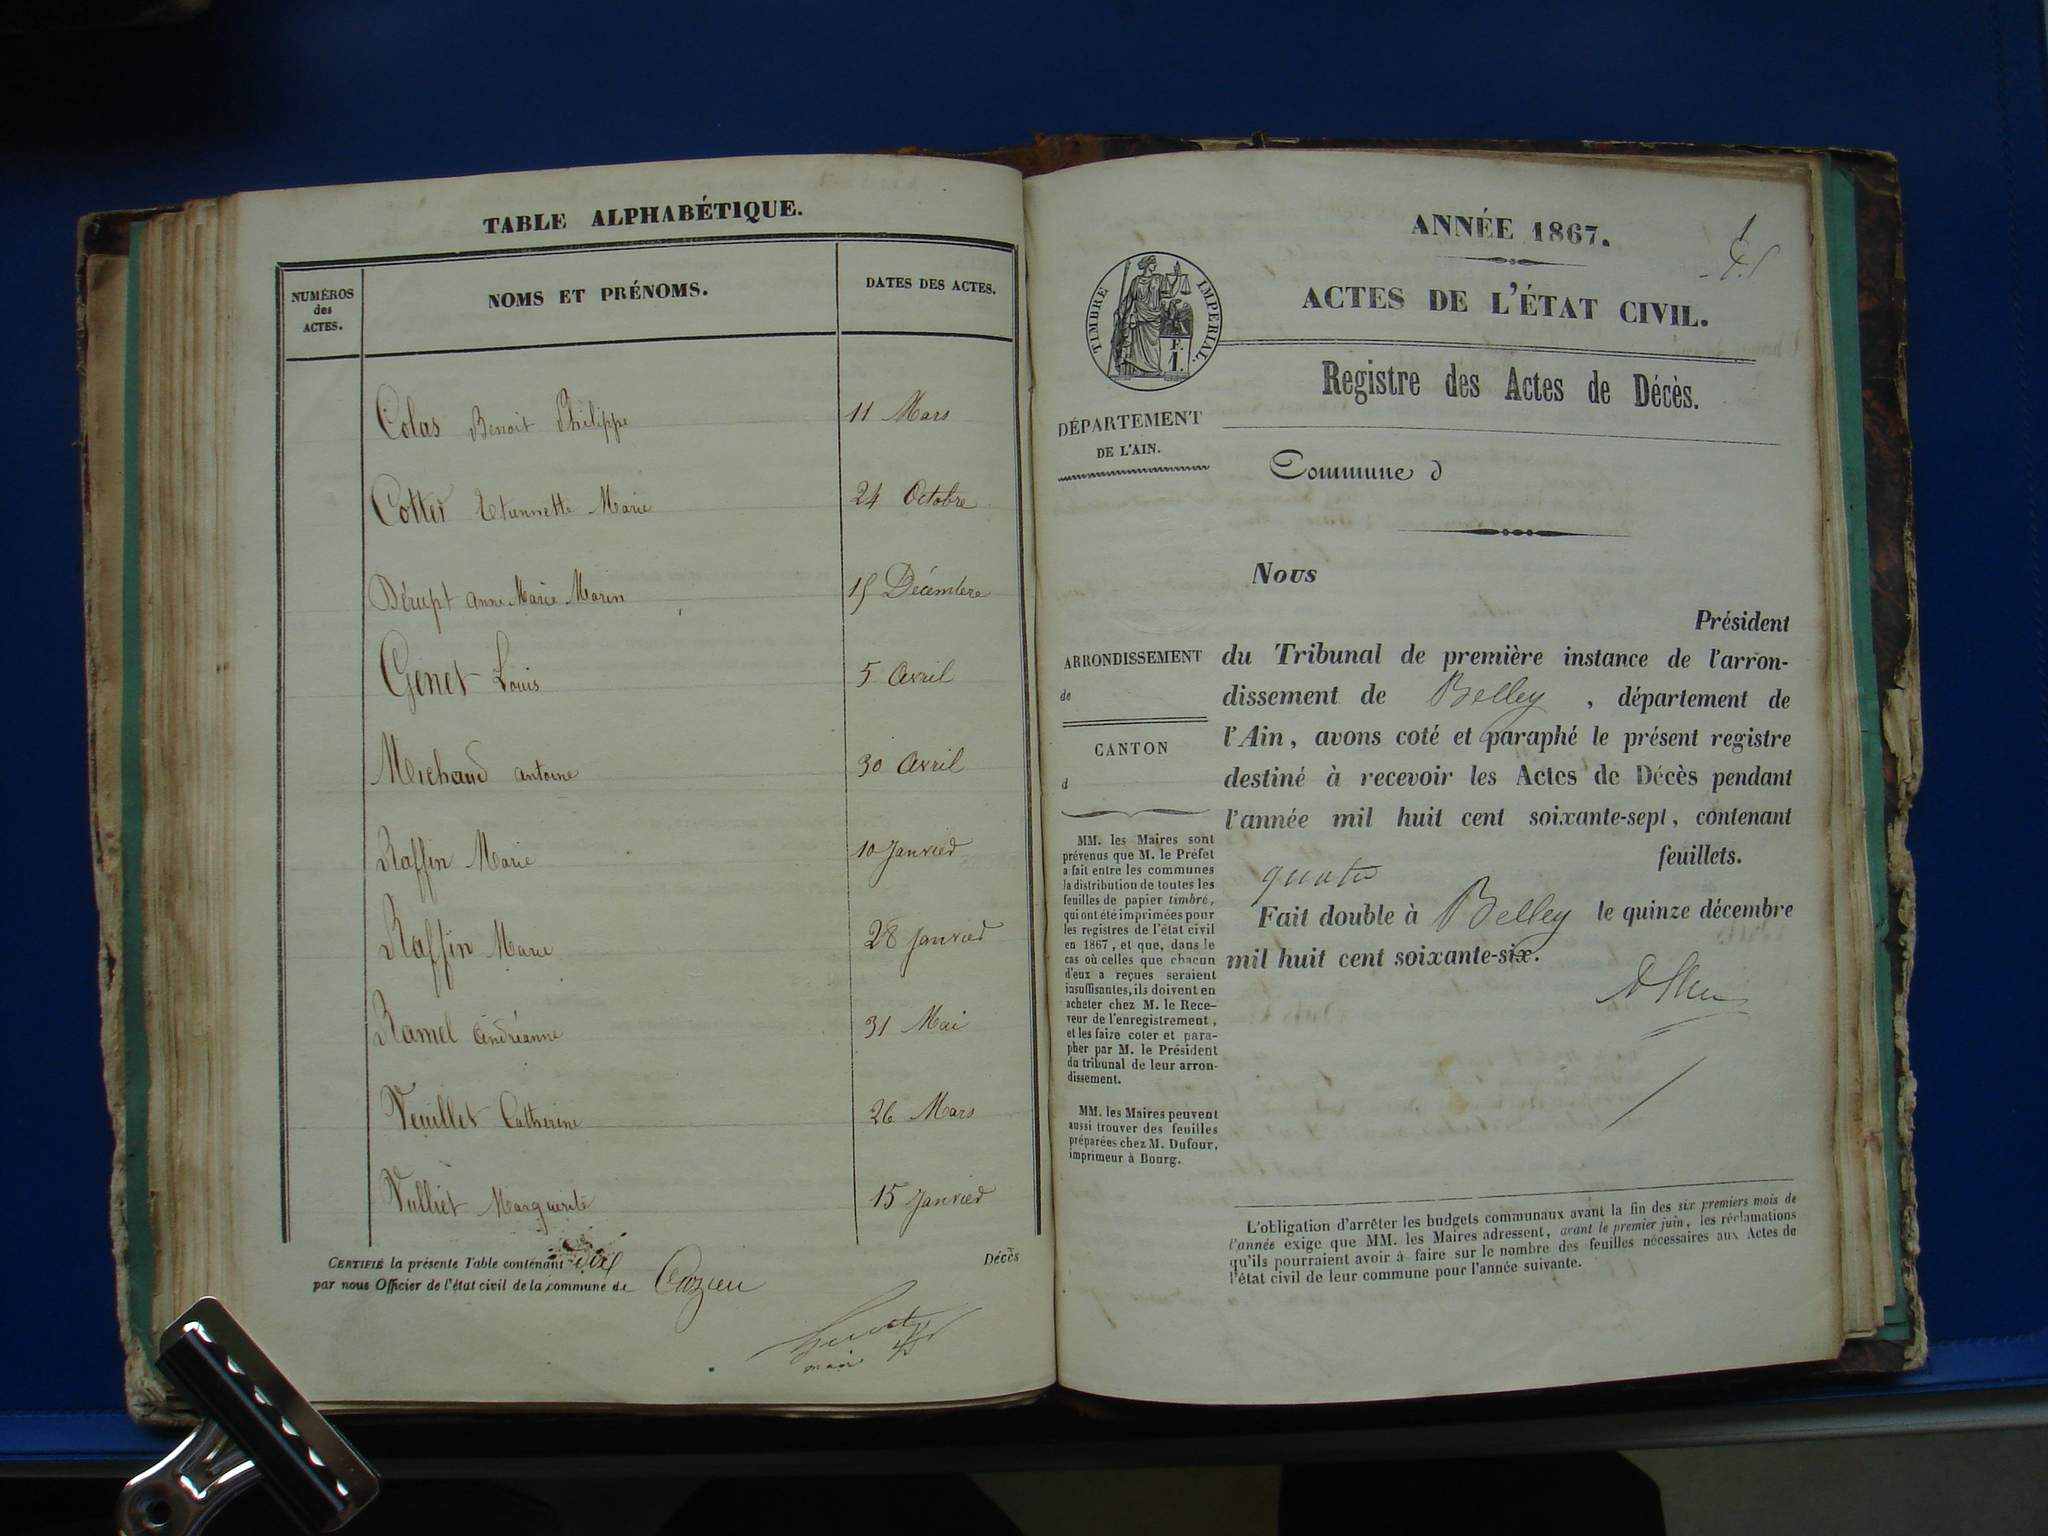 TABLE ALPHABÉTIQUE.
NUMÉROS
des
ACTES.
NOMS ET PRÉNOMS.
DATES DES ACTES.
Colas Benoit Philippe 11 Mars
Cottet Etiennette Marie 24 Octobre
Dérupt anne Marie Marin 15 Décembre
Genet Louis 5 Avril
Michaud antoine 30 Avril
Raffin Marie 10 Janvier
Raffin Marie 28 Janvier
Ramel Andréanne 31 Mai
Veuillet Catherine 26 Mars
Vulliet Marguerite 15 Janvier
CERTIFIÉ la présente Table contenant dix Décès
par nous Officier de l'état civil de la commune de Cuzieu
maire
ANNÉE 1867.
ACTES DE L'ÉTAT CIVIL.
TIMBRE IMPERIAL.
F.
1.
Registre des Actes de Décès.
DÉPARTEMENT
DE L'AIN.
Commune d
Nous
Président
ARRONDISSEMENT
de
CANTON
d
du Tribunal de première instance de l'arron-
dissement de Belley , département de
l'Ain, avons coté et paraphé le présent registre
destiné à recevoir les Actes de Décès pendant
l'année mil huit cent soixante-sept, contenant
quatre feuillets.
Fait double à Belley le quinze décembre
mil huit cent soixante-six.
MM. les Maires sont
prévenus que M. le Préfet
a fait entre les communes
la distribution de toutes les
feuilles de papier timbré,
qui ont été imprimées pour
les registres de l'état civil
en 1867, et que, dans le
cas où celles que chacun
d'eux a reçues seraient
insuffisantes, ils doivent en
acheter chez M. le Rece-
veur de l'enregistrement,
et les faire coter et para-
pher par M. le Président
du tribunal de leur arron-
dissement.
MM. les Maires peuvent
aussi trouver des feuilles
préparées chez M. Dufour,
imprimeur à Bourg.
L'obligation d'arrêter les budgets communaux avant la fin des six premiers mois de
l'année exige que MM. les Maires adressent, avant le premier juin, les réclamations
qu'ils pourraient avoir à faire sur le nombre des feuilles nécessaires aux Actes de
l'état civil de leur commune pour l'année suivante.